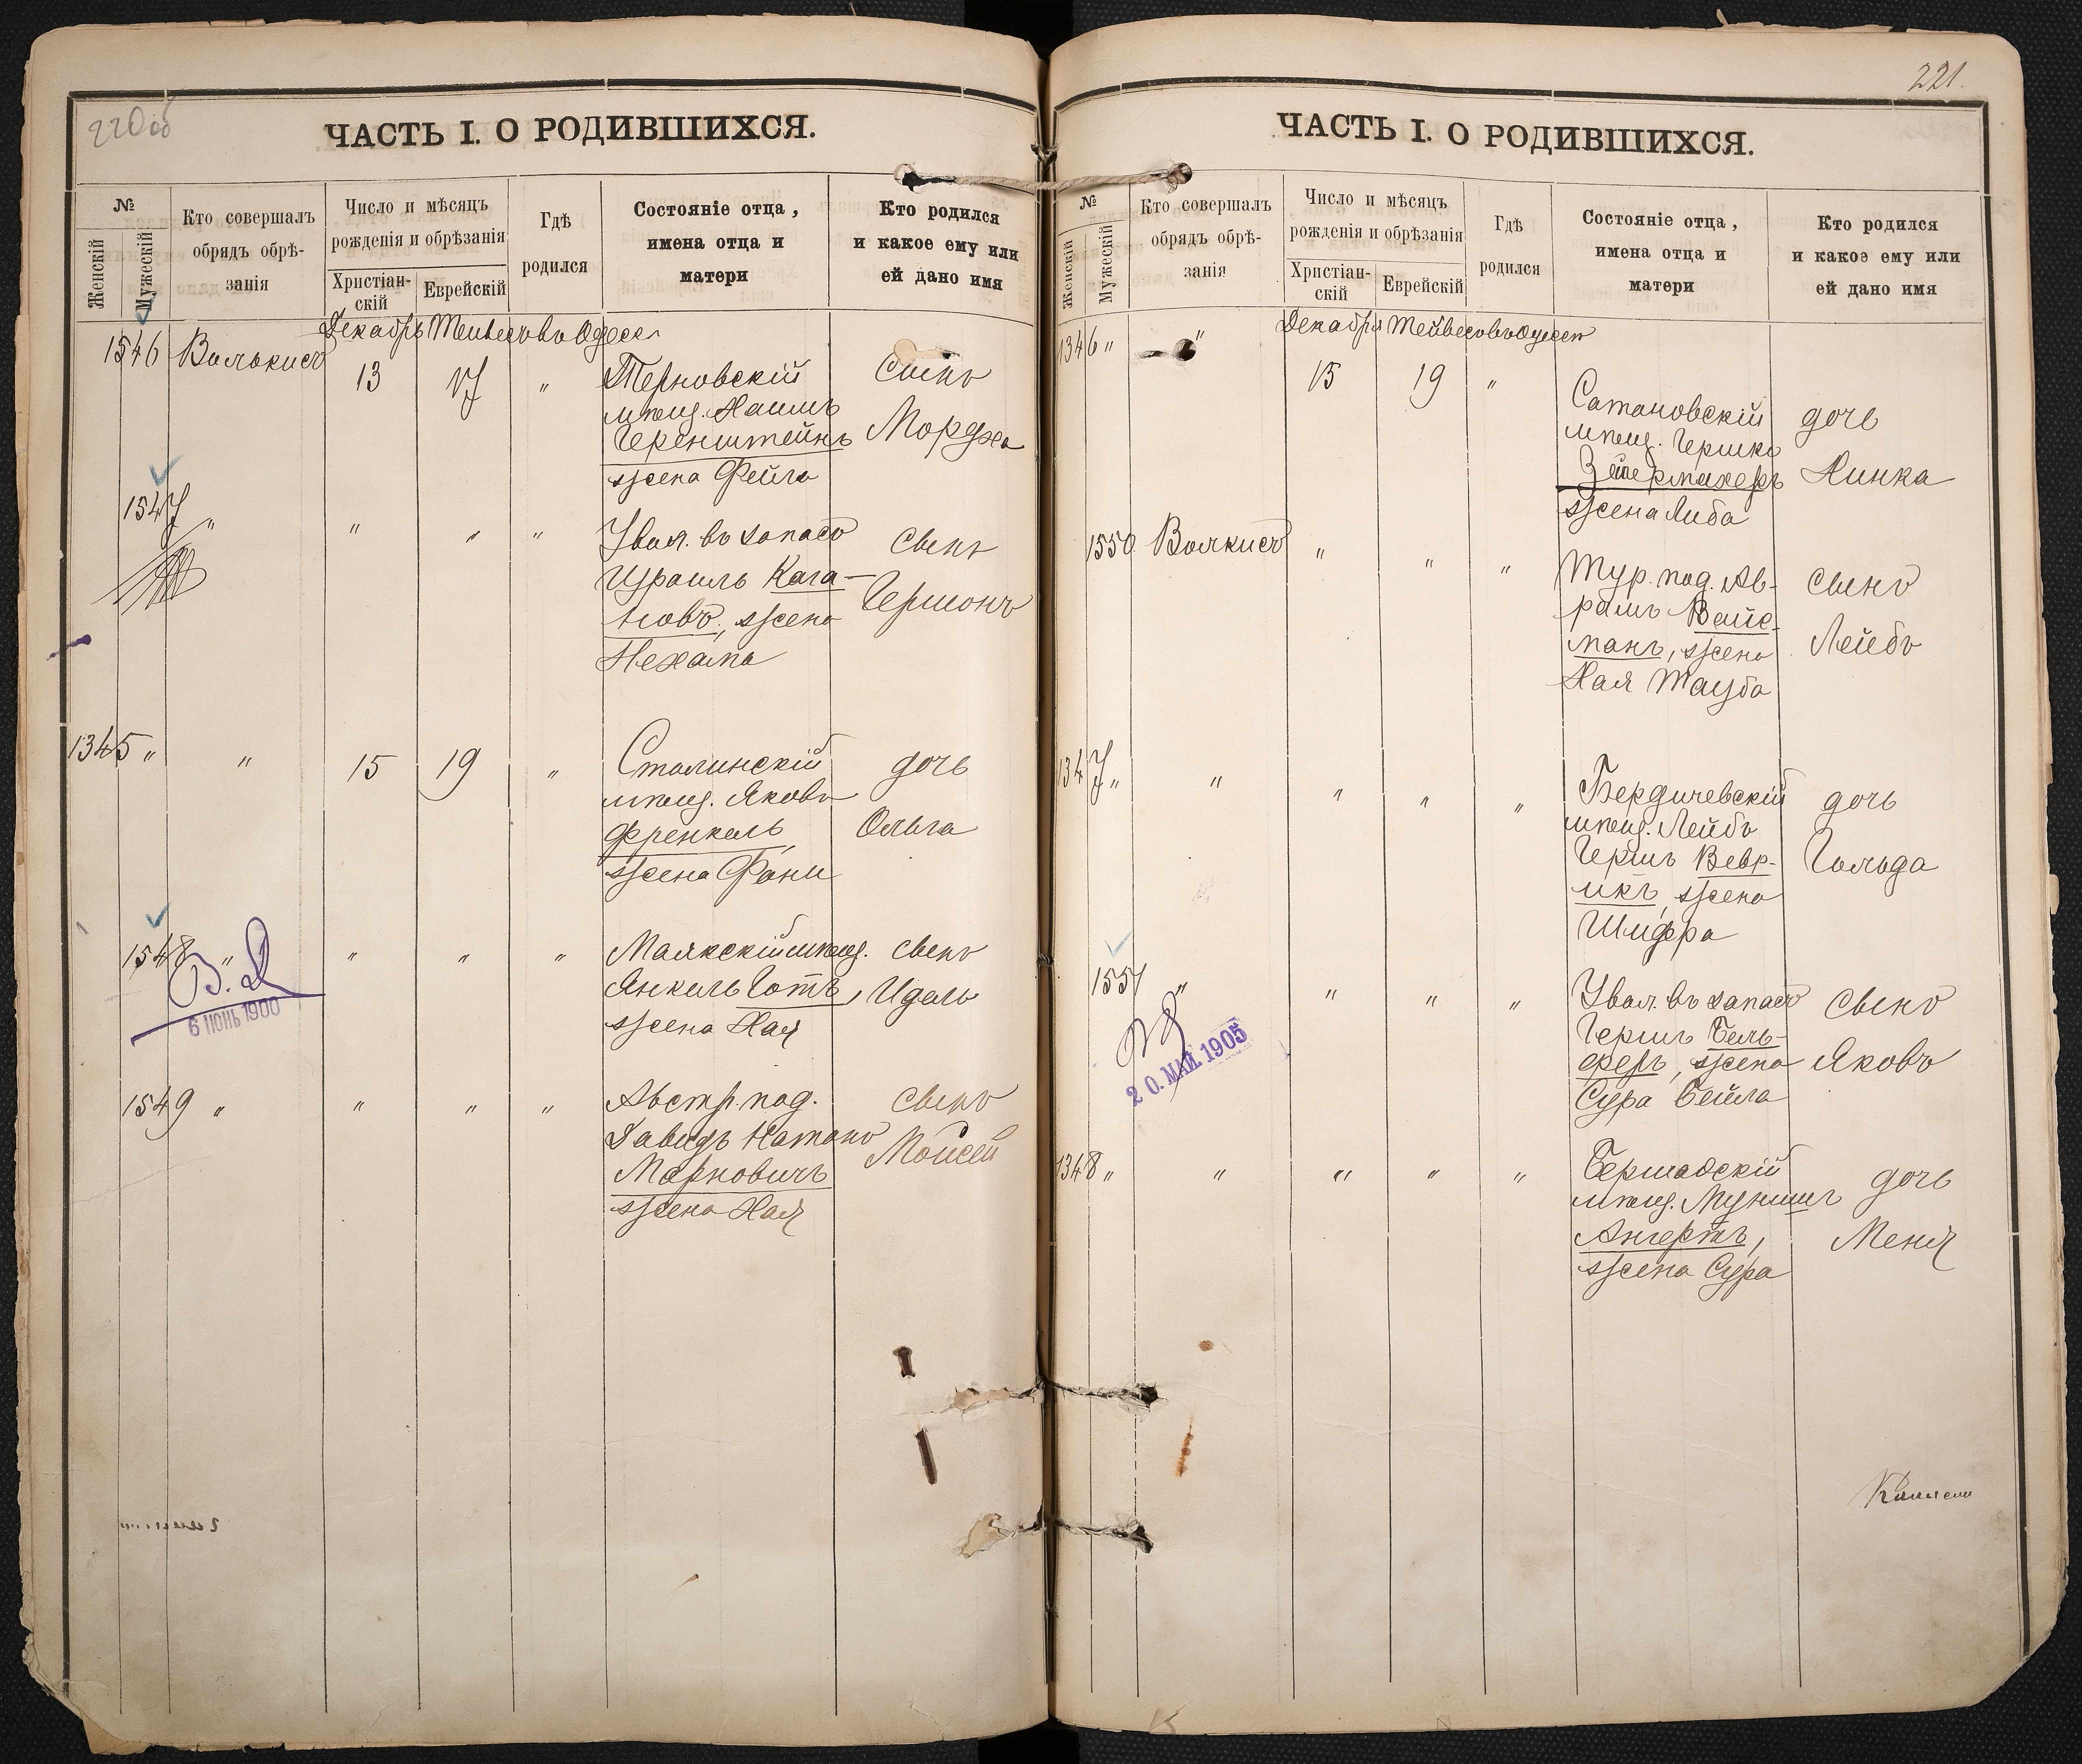 220об
ЧАСТЬ I. О РОДИВШИХСЯ.
№
Женскій
Мужескій
Кто совершалъ
обрядъ обрѣ-
занія
Число и мѣсяцъ
рожденія и обрѣзанія
Христіан-
скій
Еврейскій
Гдѣ
родился
Состояніе отца,
имена отца и
матери
Кто родился
и какое ему или
ей дано имя
Декабрь Тейвесъ въ Одессѣ
1546 Волькисъ
13 17 "
Терновскій
мѣщ. Хаимъ
Геренштейнъ
жена Фейга
сынъ
Мордха
1547 " " " "
Увол. въ запасъ
Израиль Кага-
новъ, жена
Нехама
сынъ
Гершонъ
1345 " " 15 19 "
Сталинскій
мѣщ. Яковъ
Френкель,
жена Фани
дочь
Ольга
1548 " " " "
Маякскій мѣщ.
Янкель Готъ,
жена Хая
сынъ
Идель
6 ІЮНЬ 1900
1549 " " " "
Австр. под.
Давидъ Натанъ
Марковичъ
жена Хая
сынъ
Моисей
221.
ЧАСТЬ I. О РОДИВШИХСЯ.
№
Женскій
Мужескій
Кто совершалъ
обрядъ обрѣ-
занія
Число и мѣсяцъ
рожденія и обрѣзанія
Христіан-
скій
Еврейскій
Гдѣ
родился
Состояніе отца,
имена отца и
матери
Кто родился
и какое ему или
ей дано имя
Декабря Тейвесъ въ Одессѣ
1346 " "
15 19 "
Сатановскій
мѣщ. Гершко
Зейермахеръ
жена Либа
дочь
Хинка
1550 Волькисъ " " "
Тур. под. Ав-
рамъ Вайс-
манъ, жена
Хая Тауба
сынъ
Лейбъ
1347 " " " " "
Бердичевскій
мѣщ. Лейбъ
Гершъ Вевр-
икъ, жена
Шифра
дочь
Гольда
1551 " " " "
Увол. въ запасъ
Гершъ Бель-
феръ, жена
Сура Бейла
сынъ
Яковъ
20. МАЙ. 1905
1348 " " " " "
Бершадскій
мѣщ. Мунишъ
Ангертъ,
жена Сура
дочь
Меня